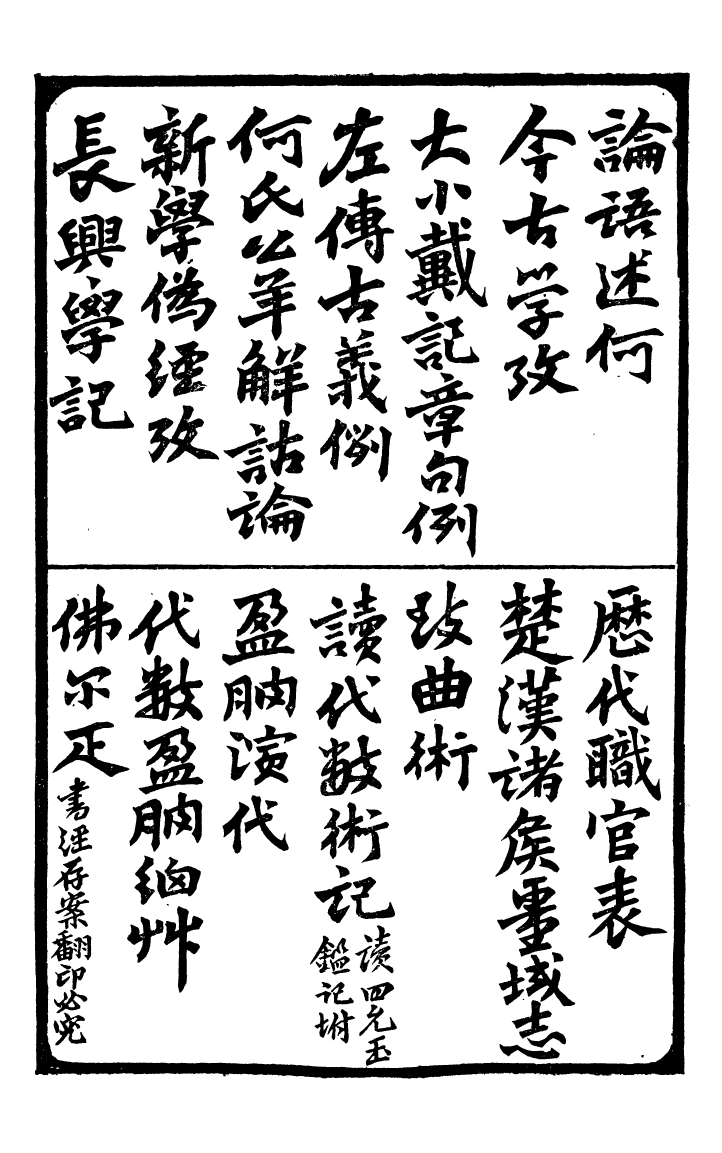 論語述何
今古学攷
大小戴記章句例
左傳古義例
何氏公羊解詁論
新學偽經攷
長興學記
歷代職官表
楚漢諸矦畺域志
攷曲術
讀代數術記
讀四元玉
鑑記坿
盈朒演代
代數盈朒細艸
佛尔疋
書經存案翻印必究